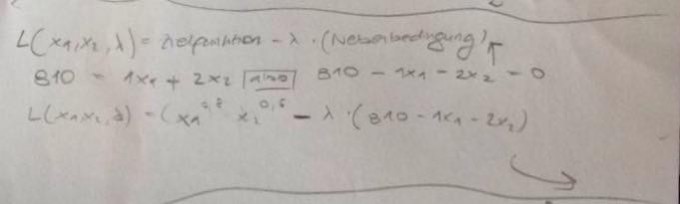 L(x1, x2, λ) = Zielfunktion - λ · (Nebenbedingung)
810 = 1x1 + 2x2 810 - 1x1 - 2x2 = 0
L(x1, x2, λ) = (x1^0,8 x2^0,6 - λ · (810 - 1x1 - 2x2)